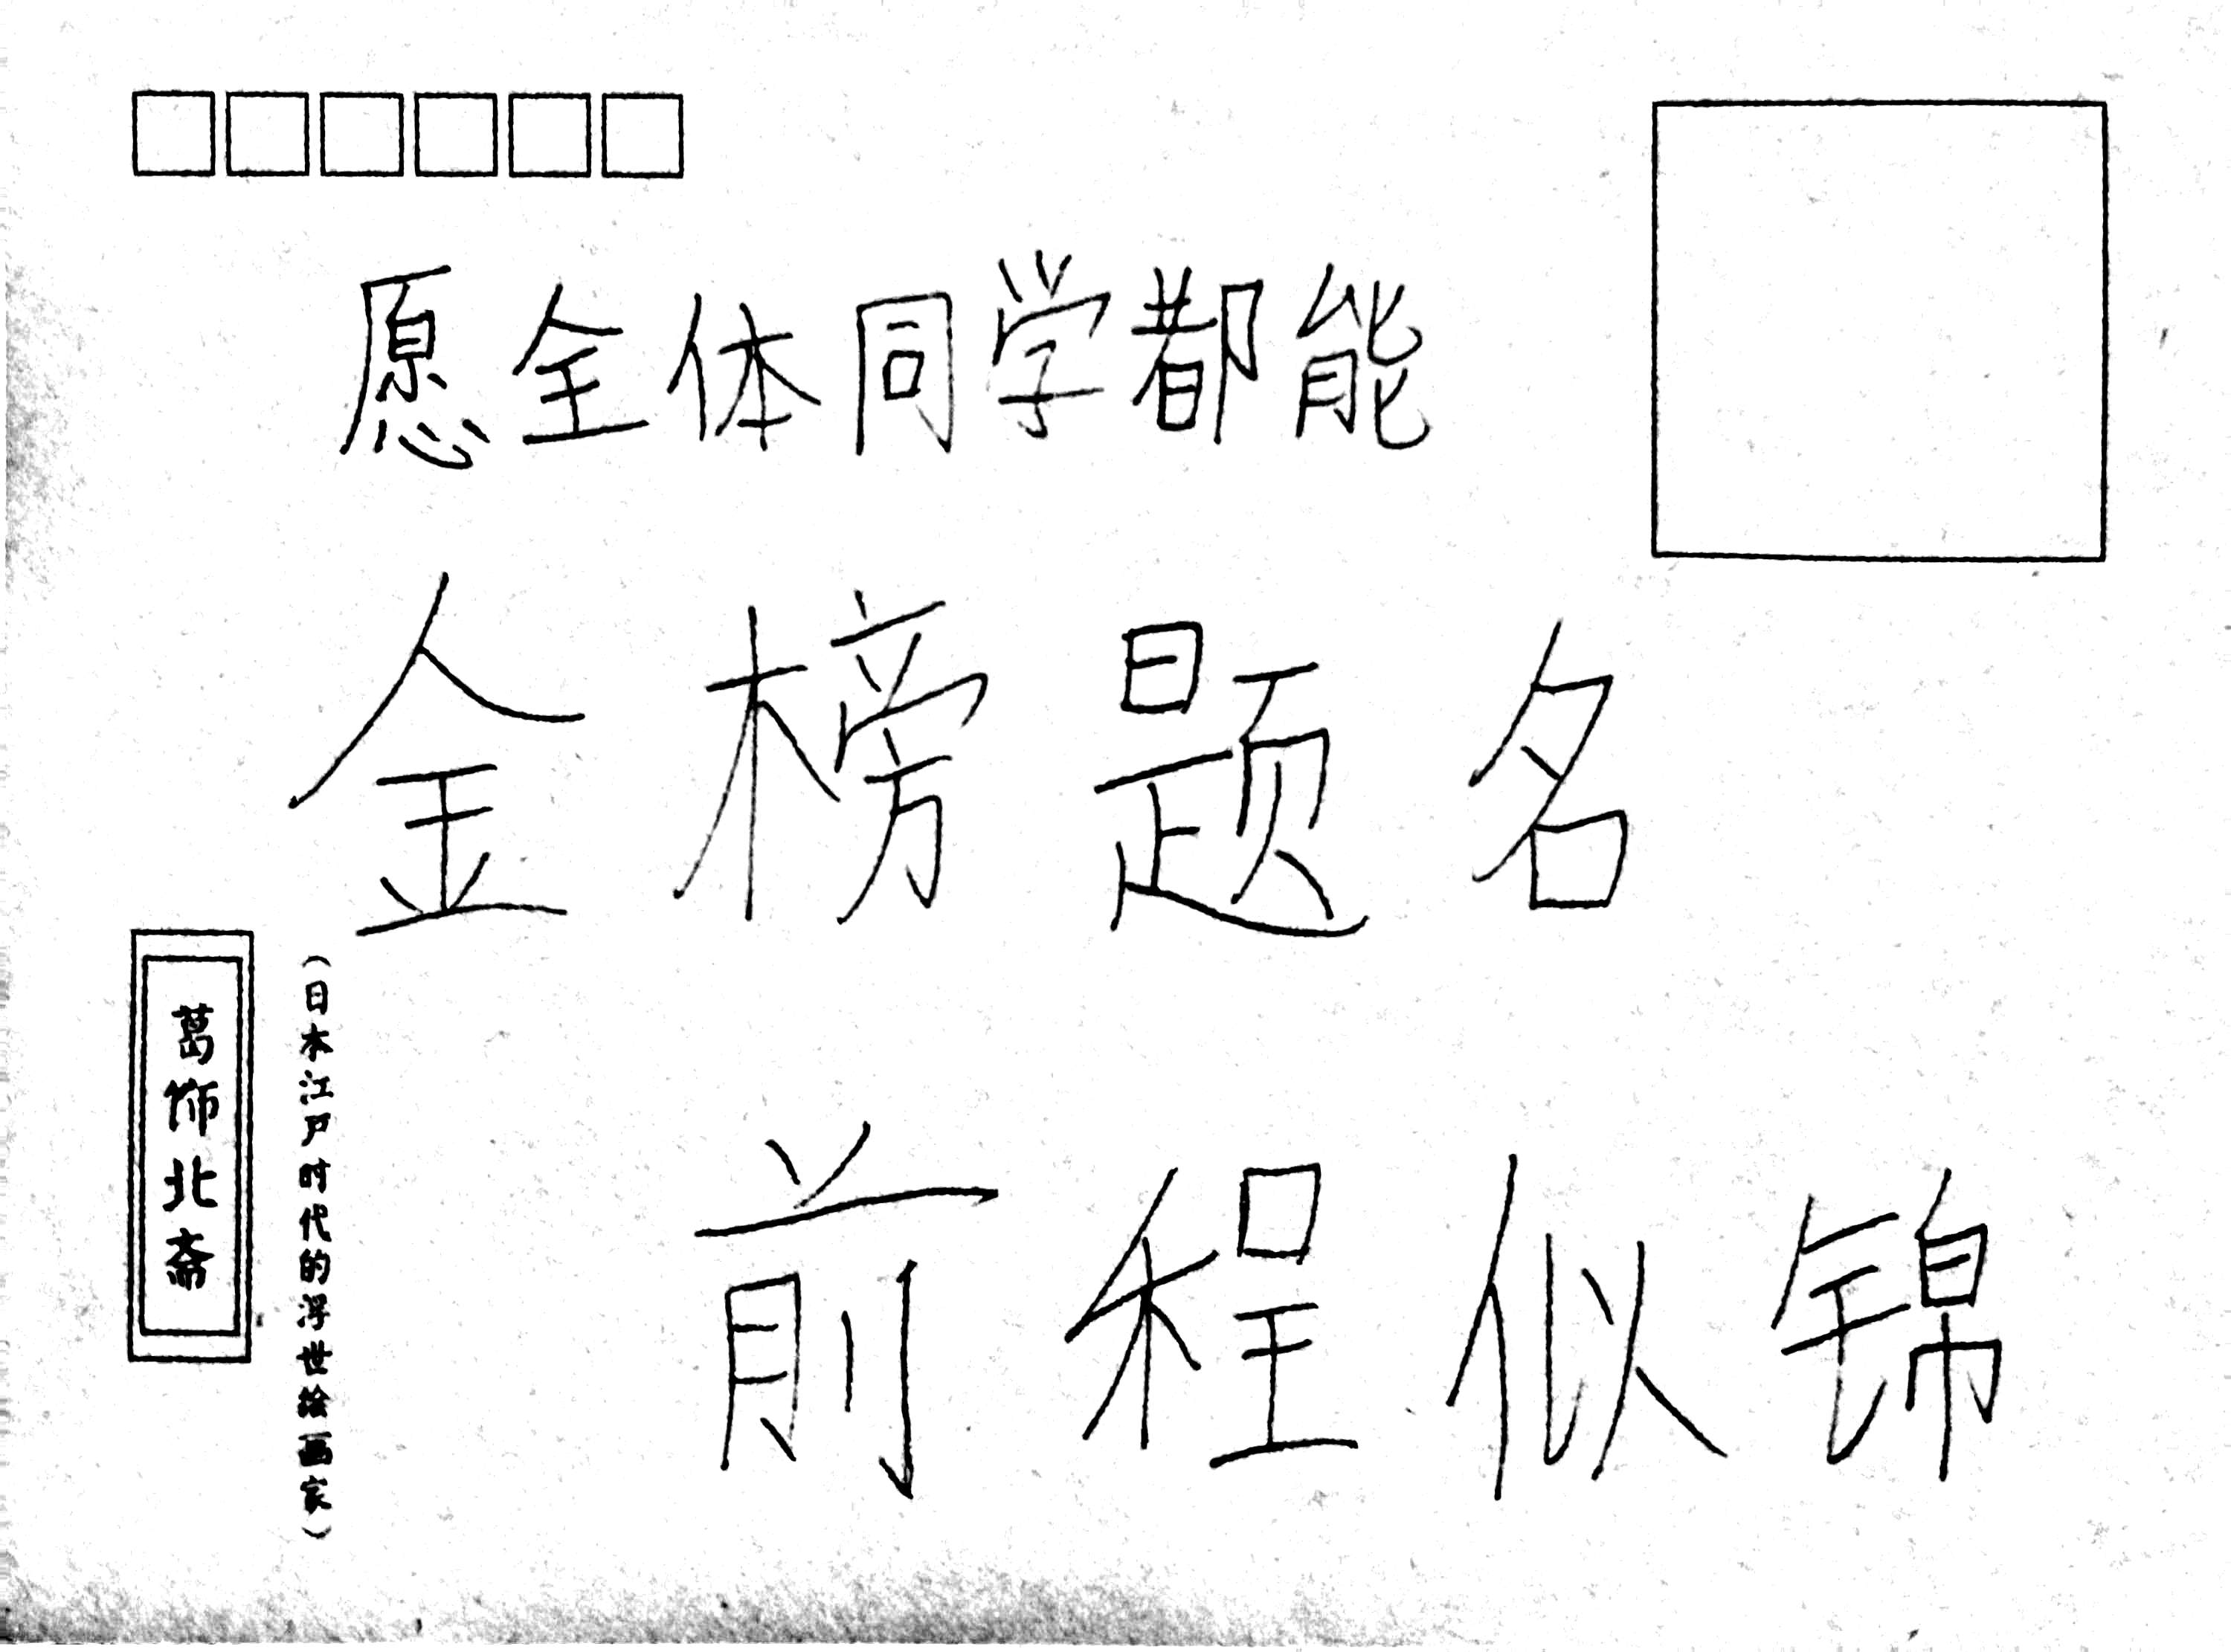 愿全体同学都能
金榜题名
前程似锦
葛饰北斋
(日本江户时代的浮世绘画家)